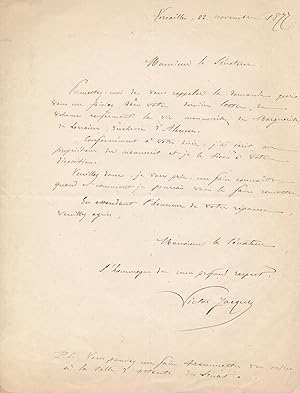 Versailles, 22 novembre 1877
Monsieur le Sénateur
Permettez-moi de vous rappeler la demande que
vous me faisiez dans votre dernière lettre, du
volume renfermant la vie manuscrite de Marguerite
de Lorraine, duchesse d'Alençon.
Conformément à votre désir, j'ai écrit au
propriétaire du manuscrit et je le tiens à votre
disposition.
Veuillez donc, je vous prie, me faire connaître
quand et comment je pourrais vous le faire remettre
En attendant l'honneur de votre réponse,
veuillez agréer,
Monsieur le Sénateur
l'hommage de mon profond respect.
Victor Jacques
P.S. Vous pouvez me faire transmettre vos ordres
à la salle d'attente du Sénat.